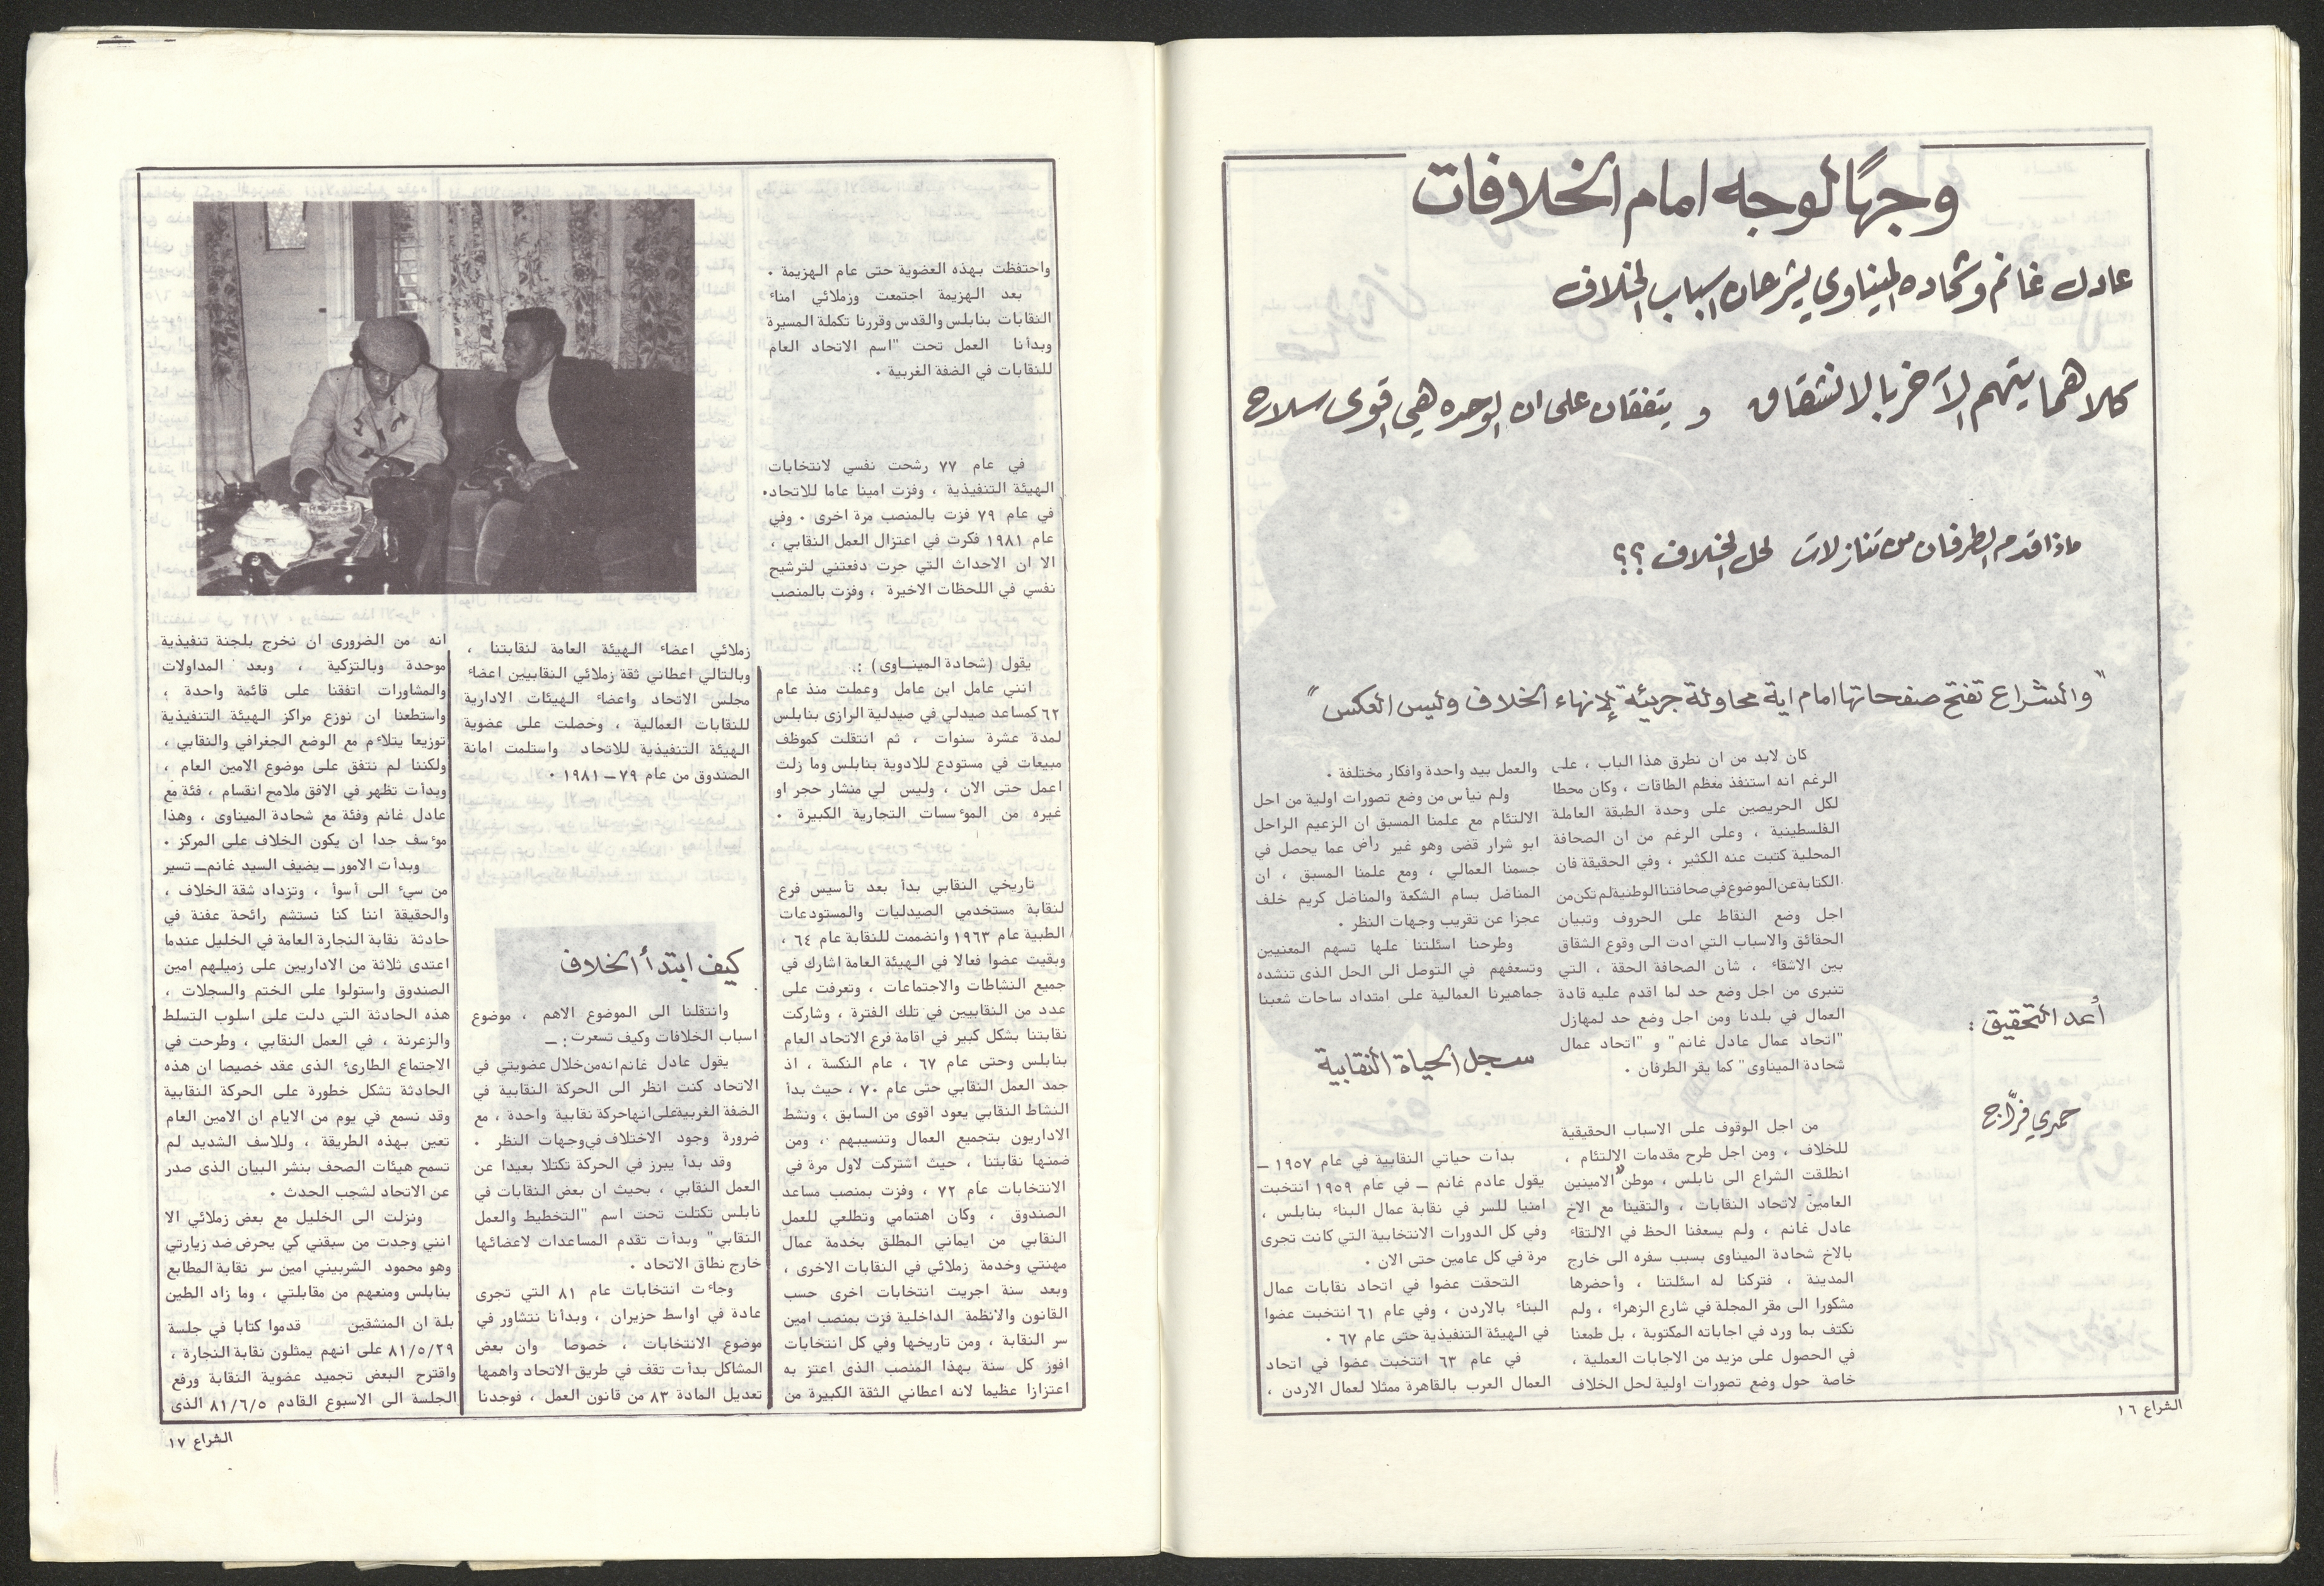 وجهًا لوجه امام الخلافات
عادل غانم وشحاده الميناوي يشرحان اسباب الخلاف
كلاهما يتهم الآخر بالانشقاق و يتفقان على ان الوحده هي اقوى سلاح
ماذا قدم الطرفان من تنازلات لحل الخلاف ؟؟
"والشراع تفتح صفحاتها امام اية محاولة جريئة لإنهاء الخلاف وليس العكس"
أعد التحقيق :
حمدي فرّاج
كان لابد من ان نطرق هذا الباب ، على
الرغم انه استنفذ معظم الطاقات ، وكان محطا
لكل الحريصين على وحدة الطبقة العاملة
الفلسطينية ، وعلى الرغم من ان الصحافة
المحلية كتبت عنه الكثير ، وفي الحقيقة فان
الكتابة عن الموضوع في صحافتنا الوطنية لم تكن من
اجل وضع النقاط على الحروف وتبيان
الحقائق والاسباب التي ادت الى وقوع الشقاق
بين الاشقاء ، شأن الصحافة الحقة ، التي
تنبرى من اجل وضع حد لما اقدم عليه قادة
العمال في بلدنا ومن اجل وضع حد لمهازل
"اتحاد عمال عادل غانم" و "اتحاد عمال
شحادة الميناوى" كما يقر الطرفان .
من اجل الوقوف على الاسباب الحقيقية
للخلاف ، ومن اجل طرح مقدمات الالتئام ،
انطلقت الشراع الى نابلس ، موطن "الامينين
العامين لاتحاد النقابات ، والتقينا مع الاخ
عادل غانم ، ولم يسعفنا الحظ في الالتقاء
بالاخ شحادة الميناوى بسبب سفره الى خارج
المدينة ، فتركنا له اسئلتنا ، وأحضرها
مشكورا الى مقر المجلة في شارع الزهراء ، ولم
نكتف بما ورد في اجاباته المكتوبة ، بل طمعنا
في الحصول على مزيد من الاجابات العملية ،
خاصة حول وضع تصورات اولية لحل الخلاف
والعمل بيد واحدة وافكار مختلفة .
ولم نيأس من وضع تصورات اولية من اجل
الالتئام مع علمنا المسبق ان الزعيم الراحل
ابو شرار قضى وهو غير راض عما يحصل في
جسمنا العمالي ، ومع علمنا المسبق ، ان
المناضل بسام الشكعة والمناضل كريم خلف
عجزا عن تقريب وجهات النظر .
وطرحنا اسئلتنا علها تسهم المعنيين
وتسعفهم في التوصل الى الحل الذى تنشده
جماهيرنا العمالية على امتداد ساحات شعبنا
سجل الحياة النقابية
بدأت حياتي النقابية في عام ١٩٥٧ –
يقول عادم غانم – في عام ١٩٥٩ انتخبت
امنيا للسر في نقابة عمال البناء بنابلس ،
وفي كل الدورات الانتخابية التي كانت تجرى
مرة في كل عامين حتى الان .
التحقت عضوا في اتحاد نقابات عمال
البناء بالاردن ، وفي عام ٦١ انتخبت عضوا
في الهيئة التنفيذية حتى عام ٦٧ .
في عام ٦٣ انتخبت عضوا في اتحاد
العمال العرب بالقاهرة ممثلا لعمال الاردن ،
الشراع ١٦
واحتفظت بهذه العضوية حتى عام الهزيمة .
بعد الهزيمة اجتمعت وزملائي امناء
النقابات بنابلس والقدس وقررنا تكملة المسيرة
وبدأنا العمل تحت "اسم الاتحاد العام
للنقابات في الضفة الغربية .
في عام ٧٧ رشحت نفسي لانتخابات
الهيئة التنفيذية ، وفزت امينا عاما للاتحاد.
في عام ٧٩ فزت بالمنصب مرة اخرى . وفي
عام ١٩٨١ فكرت في اعتزال العمل النقابي ،
الا ان الاحداث التي جرت دفعتني لترشيح
نفسي في اللحظات الاخيرة ، وفزت بالمنصب
يقول (شحادة المينـاوى) :
انني عامل ابن عامل وعملت منذ عام
٦٢ كمساعد صيدلي في صيدلية الرازى بنابلس
لمدة عشرة سنوات ، ثم انتقلت كموظف
مبيعات في مستودع للادوية بنابلس وما زلت
اعمل حتى الان ، وليس لي منشار حجر او
غيره من المؤسسات التجارية الكبيرة .
تاريخي النقابي بدأ بعد تأسيس فرع
لنقابة مستخدمي الصيدليات والمستودعات
الطبية عام ١٩٦٣ وانضممت للنقابة عام ٦٤ ،
وبقيت عضوا فعالا في الهيئة العامة اشارك في
جميع النشاطات والاجتماعات ، وتعرفت على
عدد من النقابيين في تلك الفترة ، وشاركت
نقابتنا بشكل كبير في اقامة فرع الاتحاد العام
بنابلس وحتى عام ٦٧ ، عام النكسة ، اذ
جمد العمل النقابي حتى عام ٧٠ ، حيث بدأ
النشاط النقابي يعود اقوى من السابق ، ونشط
الاداريون بتجميع العمال وتنسيبهم ، ومن
ضمنها نقابتنا ، حيث اشتركت لاول مرة في
الانتخابات عام ٧٢ ، وفزت بمنصب مساعد
الصندوق ، وكان اهتمامي وتطلعي للعمل
النقابي من ايماني المطلق بخدمة عمال
مهنتي وخدمة زملائي في النقابات الاخرى ،
وبعد سنة اجريت انتخابات اخرى حسب
القانون والانظمة الداخلية فزت بمنصب امين
سر النقابة ، ومن تاريخها وفي كل انتخابات
افوز كل سنة بهذا المنصب الذى اعتز به
اعتزازا عظيما لانه اعطاني الثقة الكبيرة من
زملائي اعضاء الهيئة العامة لنقابتنا ،
وبالتالي اعطاني ثقة زملائي النقابيين اعضاء
مجلس الاتحاد واعضاء الهيئات الادارية
للنقابات العمالية ، وحصلت على عضوية
الهيئة التنفيذية للاتحاد واستلمت امانة
الصندوق من عام ٧٩ – ١٩٨١ .
كيف ابتدأ الخلاف
وانتقلنا الى الموضوع الاهم ، موضوع
اسباب الخلافات وكيف تسعرت : –
يقول عادل غانم انه من خلال عضويتي في
الاتحاد كنت انظر الى الحركة النقابية في
الضفة الغربية على انها حركة نقابية واحدة ، مع
ضرورة وجود الاختلاف في وجهات النظر .
وقد بدأ يبرز في الحركة تكتلا بعيدا عن
العمل النقابي ، بحيث ان بعض النقابات في
نابلس تكتلت تحت اسم "التخطيط والعمل
النقابي" وبدأت تقدم المساعدات لاعضائها
خارج نطاق الاتحاد .
وجاءت انتخابات عام ٨١ التي تجرى
عادة في اواسط حزيران ، وبدأنا نتشاور في
موضوع الانتخابات ، خصوصا وان بعض
المشاكل بدأت تقف في طريق الاتحاد واهمها
تعديل المادة ٨٣ من قانون العمل ، فوجدنا
انه من الضرورى ان نخرج بلجنة تنفيذية
موحدة وبالتزكية ، وبعد المداولات
والمشاورات اتفقنا على قائمة واحدة ،
واستطعنا ان نوزع مراكز الهيئة التنفيذية
توزيعا يتلاءم مع الوضع الجغرافي والنقابي ،
ولكننا لم نتفق على موضوع الامين العام ،
وبدأت تظهر في الافق ملامح انقسام ، فئة مع
عادل غانم وفئة مع شحادة الميناوى ، وهذا
مؤسف جدا ان يكون الخلاف على المركز .
وبدأت الامور – يضيف السيد غانم – تسير
من سيء الى أسوأ ، وتزداد شقة الخلاف ،
والحقيقة اننا كنا نستشم رائحة عفنة في
حادثة نقابة النجارة العامة في الخليل عندما
اعتدى ثلاثة من الاداريين على زميلهم امين
الصندوق واستولوا على الختم والسجلات ،
هذه الحادثة التي دلت على اسلوب التسلط
والزعرنة ، في العمل النقابي ، وطرحت في
الاجتماع الطارىء الذى عقد خصيصا ان هذه
الحادثة تشكل خطورة على الحركة النقابية
وقد نسمع في يوم من الايام ان الامين العام
تعين بهذه الطريقة ، وللاسف الشديد لم
تسمح هيئات الصحف بنشر البيان الذى صدر
عن الاتحاد لشجب الحدث .
ونزلت الى الخليل مع بعض زملائي الا
انني وجدت من سبقني كي يحرض ضد زيارتي
وهو محمود الشربيني امين سر نقابة المطابع
بنابلس ومنعهم من مقابلتي ، وما زاد الطين
بلة ان المنشقين قدموا كتابا في جلسة
٨١/٥/٢٩ على انهم يمثلون نقابة النجارة ،
واقترح البعض تجميد عضوية النقابة ورفع
الجلسة الى الاسبوع القادم ٨١/٦/٥ الذى
الشراع ١٧